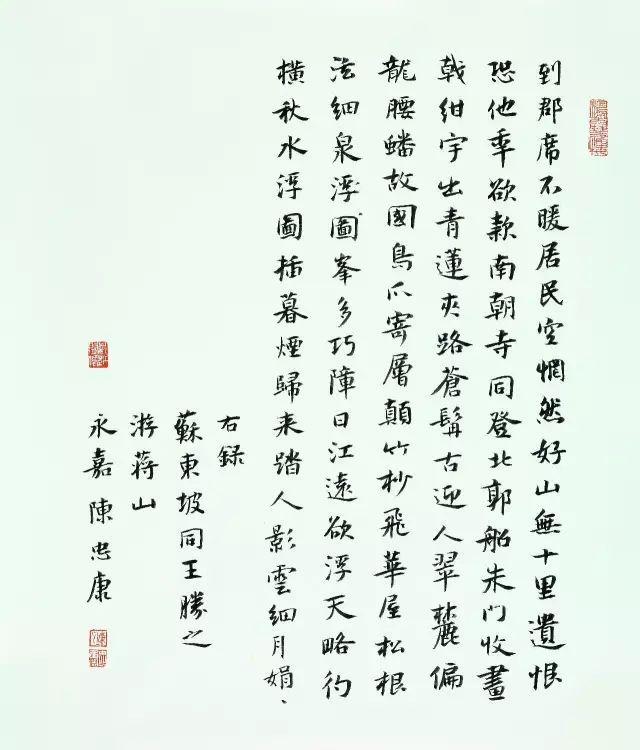 到郡席不暖居民空惘然好山無十里遺恨
恐他秊欲款南朝寺同登北郭船朱門收畫
戟紺宇出青蓮夾路蒼髯古迎人翠麓偏
龍腰蟠故國鳥爪寄層顛竹杪飛華屋松根
泫細泉浮圖峯多巧障日江遠欲浮天略彴
橫秋水浮圖插暮煙歸来踏人影雲細月娟、
右録
蘇東坡同王勝之
游蔣山
永嘉陳忠康